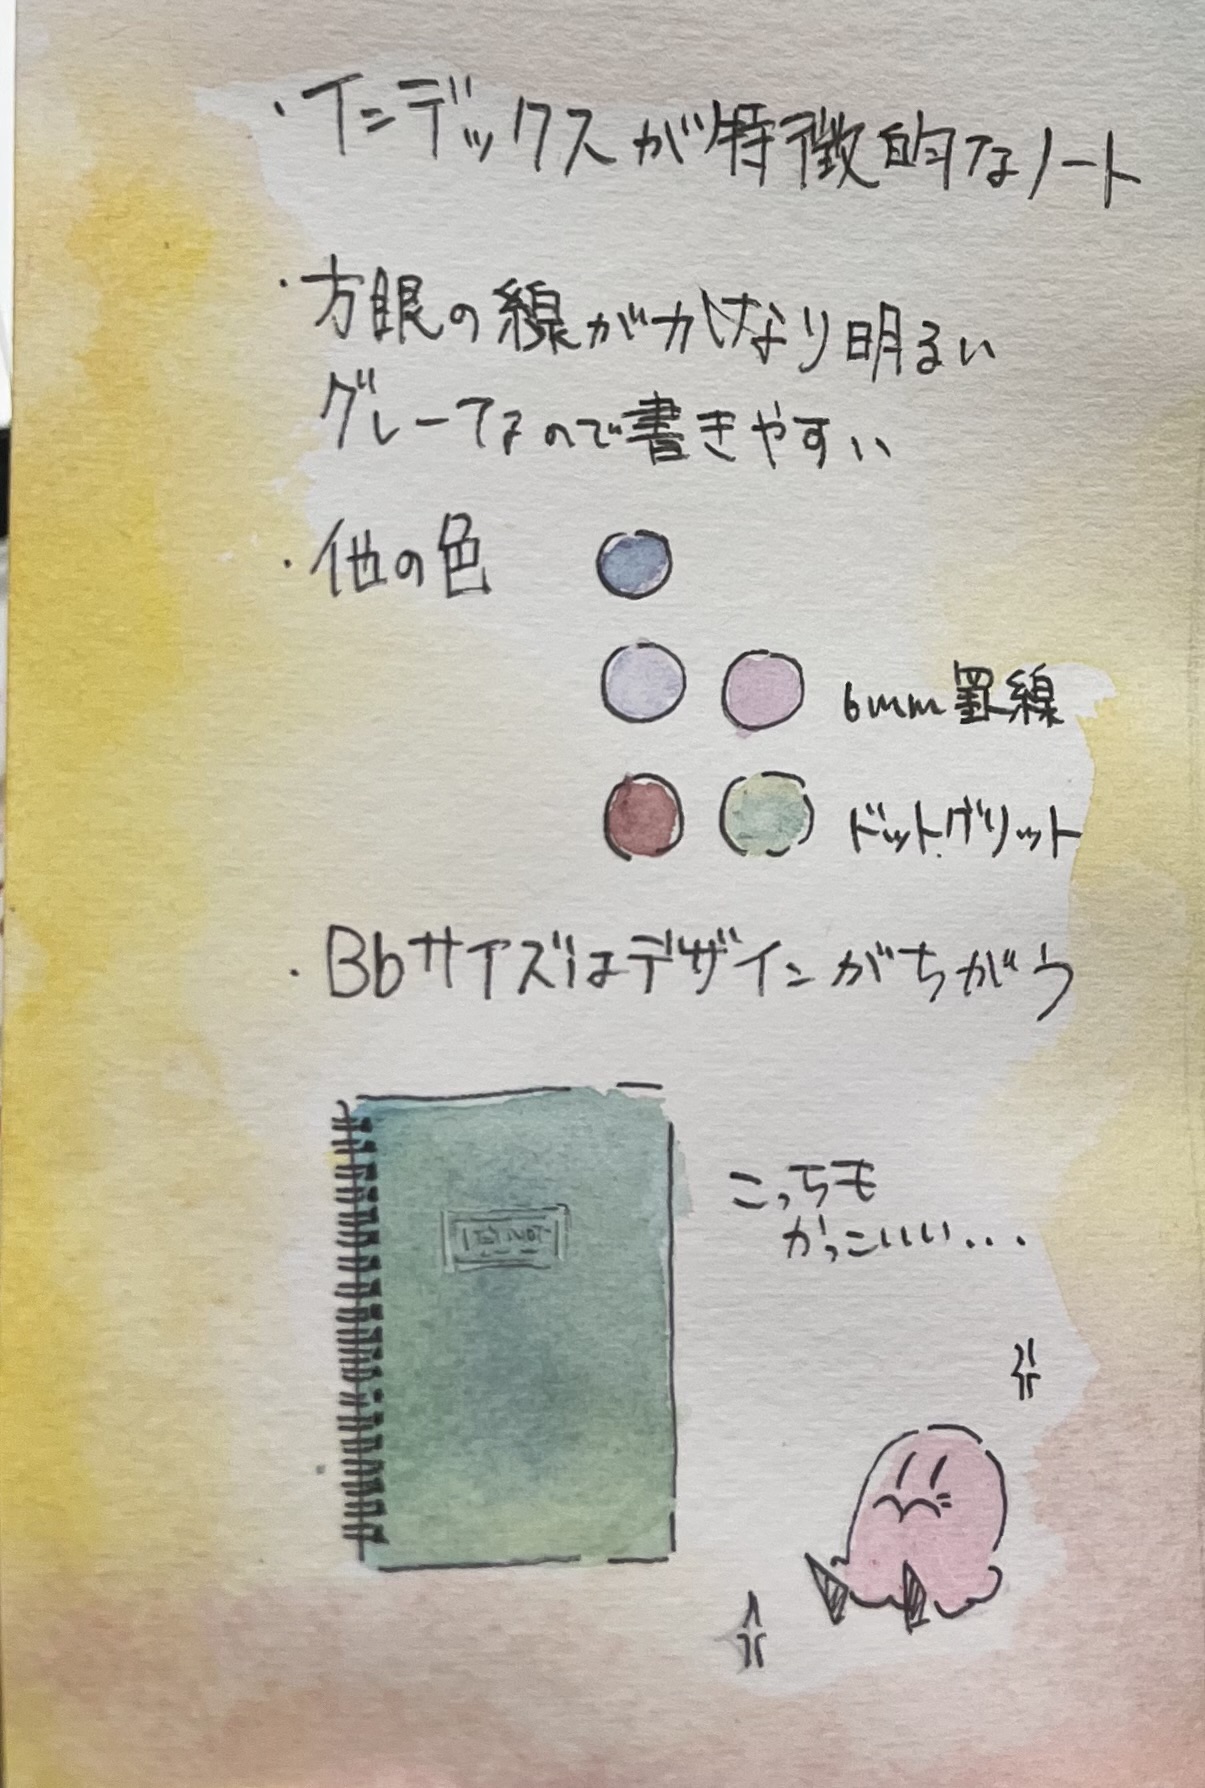 ・インデックスが特徴的なノート
・方眼の線がかなり明るい
グレーなので書きやすい
・他の色
6mm罫線
ドットグリット
・B6サイズはデザインがちがう
こっちも
かっこいい...